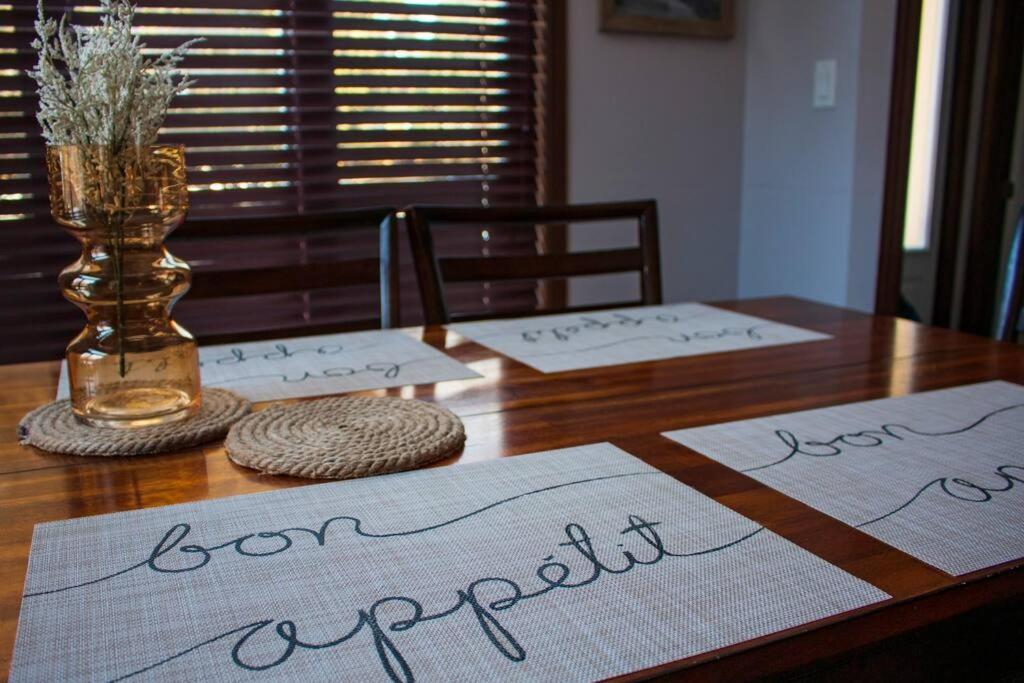 bon
appétit
bon
ap
bon
appé
bon
appétit